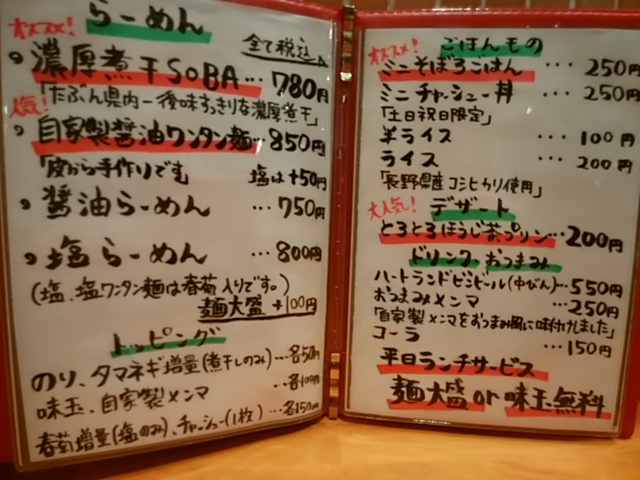 オススメ!
らーめん
全て税込
濃厚煮干SOBA… 780円
「たぶん県内一後味すっきりな濃厚煮干」
人気!
自家製醤油ワンタン麺…850円
「皮から手作りです 塩は+50円
醤油らーめん …750円
塩らーめん …800円
(塩、塩ワンタン麺は春菊入りです。)
麺大盛 +100円
トッピング
のり、タマネギ増量(煮干しのみ)…各50円
味玉、自家製メンマ …各100円
春菊増量(塩のみ)、チャーシュー(1枚)…各150円
ごはんもの
オススメ!
ミニそぼろごはん …250円
ミニチャーシュー丼 …250円
「土日祝日限定」
半ライス …100円
ライス …200円
「長野県産コシヒカリ使用」
大人気! デザート
とろとろほうじ茶プリン…200円
ドリンク、おつまみ
ハートランドビンビール(中びん)…550円
おつまみメンマ …250円
「自家製メンマをおつまみ風に味付けしました」
コーラ …150円
平日ランチサービス
麺大盛 or 味玉無料